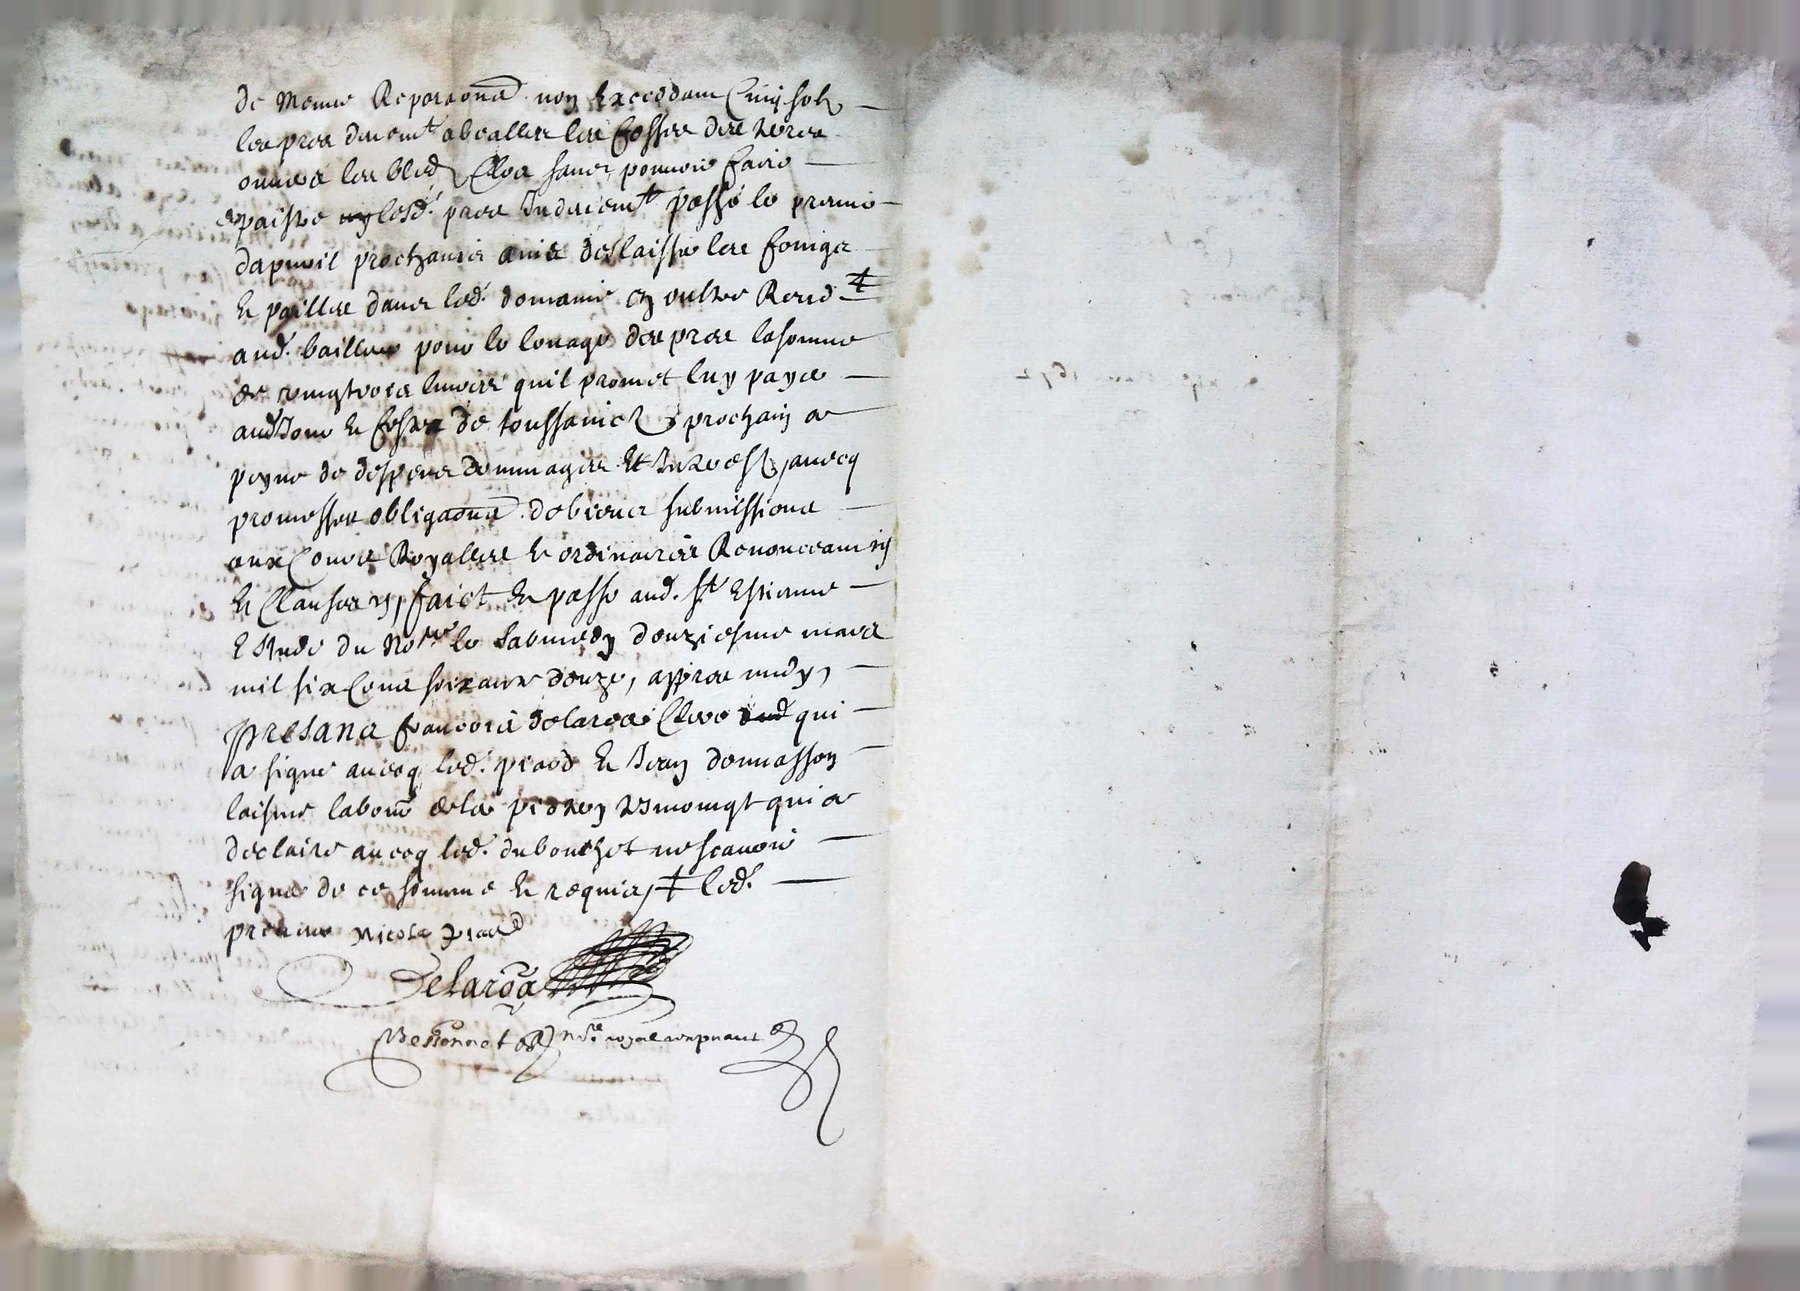 de menue Reparaõns non Excedam Cinq solz
les pres duem.t abealler les fosses des terres
ouura les bleds Clos sans pouuoir faire
paistre lesd. pres Induem.t passé le premie
dapuril prochain ains deslaisse les foings
Et pailles dans led. domaine en oultre Rend ‡
aud. bailleur pour le louage des pres la somme
de vingt trois liures quil promet luy payer
aud Jour Et feste de toussainctz prochain a
peyne de despens dommages Et Interestz, auecq
promesses obligaõns de biens submissions
aux Cours Royalles Et ordinaires Renonceans
Et Clauses faict Et passe aud. S.t Estienne
Estude du No.re le Sabmedy douziesme mars
mil six Cens soixante douze, appres midy,
Presans francois delaroa Clerc qui
a signe auecq led. piaud Et Jean donnasson
laisne labour de la tesmoingt qui a
declaire auecq led. dubouchet ne scauoir
signe de ce somme Et requis, ‡ led.
preneur Nicolas piaud
Delaroa
Bessonnet no.re royal
1672